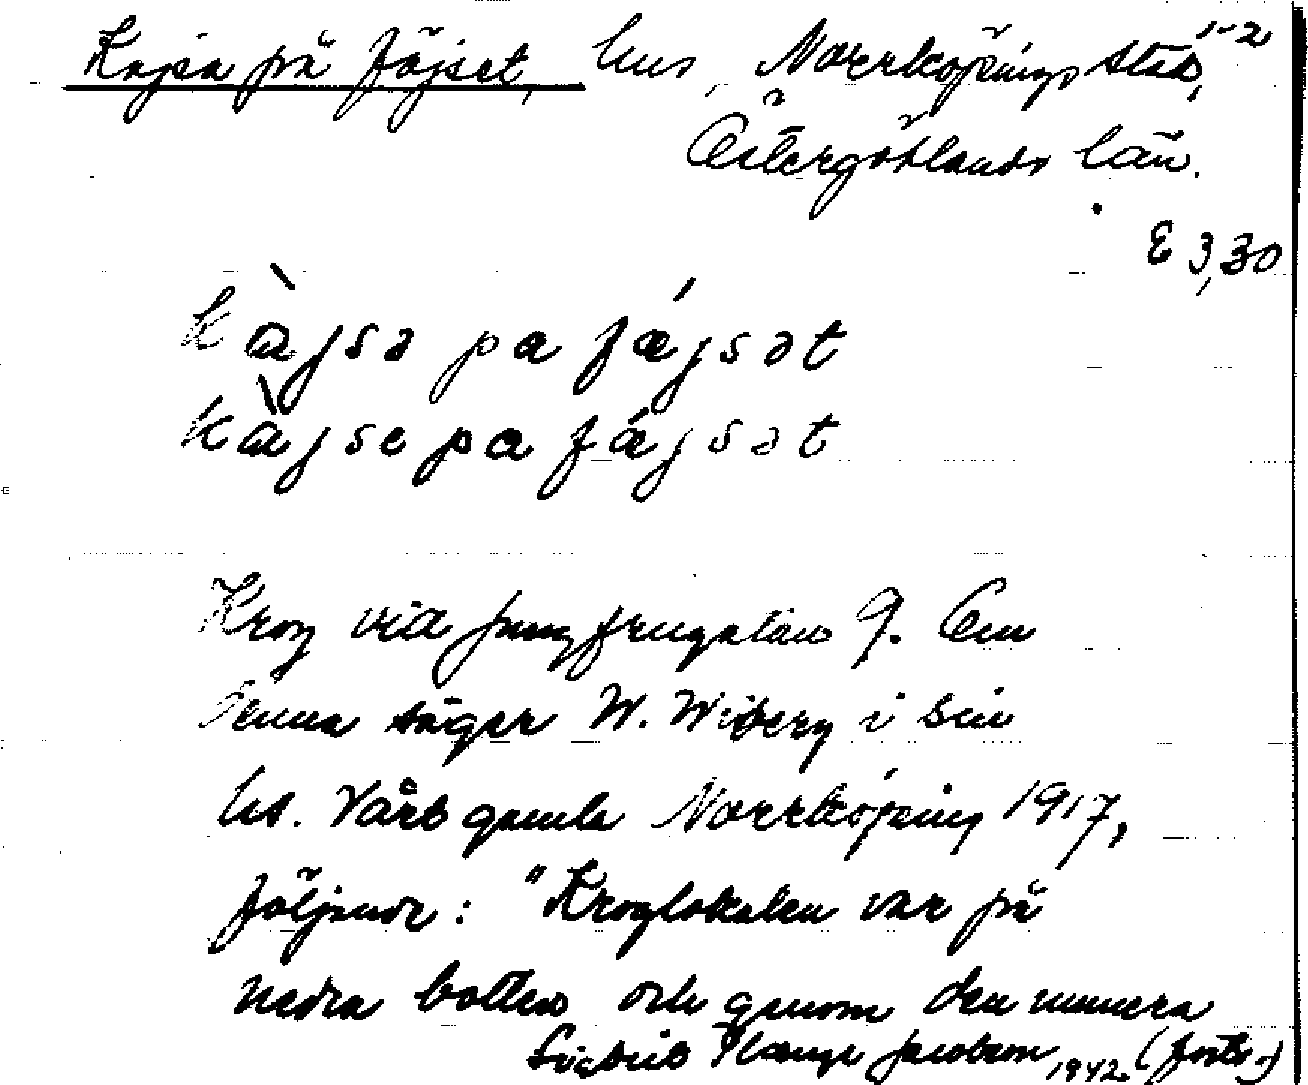 Kajsa på föjset, hus, Norrköpings stad, 1-2
Östergötlands län.
E 3,30
kàjsə pa fǽjsət
kàjse pa fǽjsət
Krog vid Jungfrugatan 9. Om
denna säger W. Wiberg i sin
bd. Vårt gamla Norrköping 1917,
följande: "Kroglokalen var på
nedra botten och genom den numera
Sigurd Jacobson 1942. (forts.)